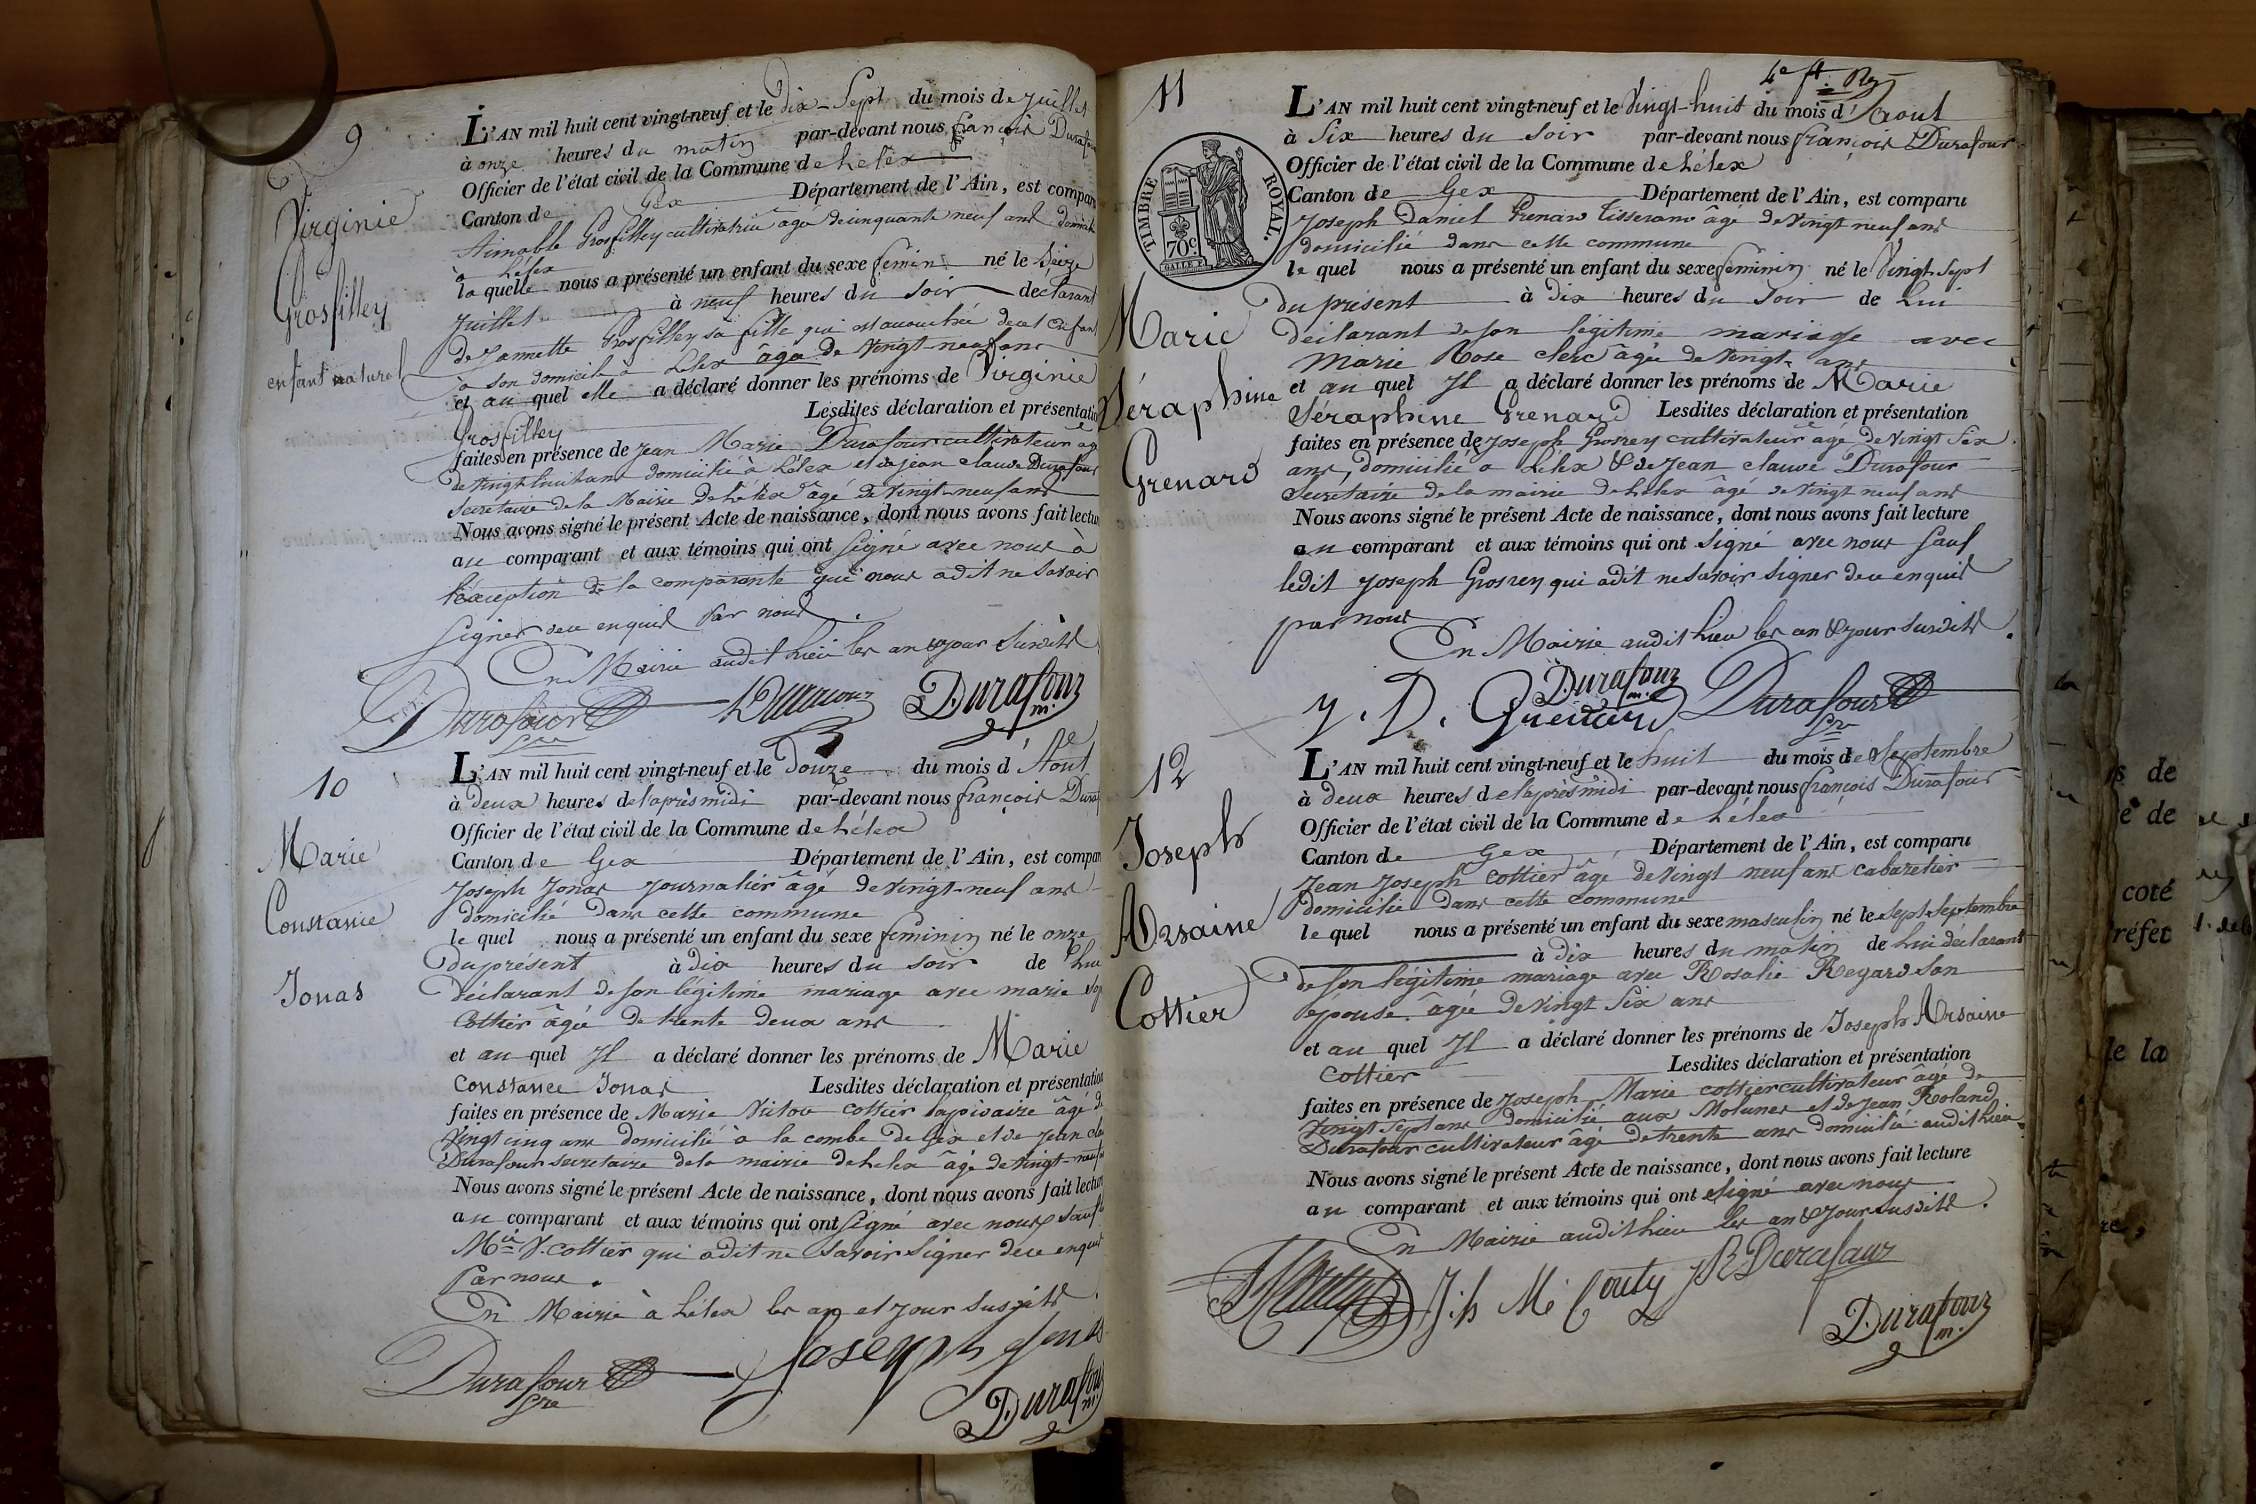 9
Virginie
Grosfilley
enfant naturel
L'AN mil huit cent vingt-neuf et le dix-Sept du mois de Juillet
à onze heures du matin par-devant nous françois Durafour
Officier de l'état civil de la Commune de Lélex
Canton de Gex Département de l'Ain, est compar
Aimable Grosfilley cultivatrice âgée de cinquante neuf ans domicilié
à Lélex
la quelle nous a présenté un enfant du sexe féminin né le Seize
Juillet à neuf heures du Soir déclarant
de Jannette Grosfilley sa fille qui est accouchée de cet enfant
à son domicile à Lélex âgée de Vingt-neuf ans
et au quel elle a déclaré donner les prénoms de Virginie
Grosfilley Lesdites déclaration et présentation
faites en présence de Jean Marie Durafour cultivateur âgé
de Vingt huit ans domicilié à Lélex et de jean claude Durafour
Secrétaire de la Mairie de Lélex âgé de Vingt-neuf ans
Nous avons signé le présent Acte de naissance, dont nous avons fait lectur
au comparant et aux témoins qui ont Signé avec nous à
l'exception de la comparante qui nous a dit ne Savoir
Signer de ce enquis Par nous.
En Mairie audit Lieu les an & jour Susdits
Durafour Sre Durafour Durafour m.
10
Marie
Constance
Jonas
L'AN mil huit cent vingt-neuf et le Douze du mois d'Aout
à deux heures de l'après midi par-devant nous françois Duraf
Officier de l'état civil de la Commune de Lélex
Canton de Gex Département de l'Ain, est compar
Joseph Jonas Journalier âgé de Vingt-neuf ans
domicilié dans cette commune
le quel nous a présenté un enfant du sexe féminin né le onze
du présent à dix heures du soir de lui
déclarant de son légitime mariage avec marie
Cottier âgée de trente deux ans
et au quel Il a déclaré donner les prénoms de Marie
Constance Jonas Lesdites déclaration et présentation
faites en présence de Marie Victor Cottier lapidaire âgé de
Vingt cinq ans domicilié à la combe de Gex et de jean cla
Durafour secretaire de la mairie de Lelex âgé de Vingt-neuf a
Nous avons signé le présent Acte de naissance, dont nous avons fait lecture
au comparant et aux témoins qui ont Signé avec nous Sauf
Mie V. Cottier qui a dit ne Savoir Signer de ce enquis
Par nous.
En Mairie à Lélex les an et jour Susdits.
Durafour Sre Joseph Jonas
Durafour m.
11
4e ft. Rg
TIMBRE ROYAL.
70c.
Marie
Séraphine
Grenard
L'AN mil huit cent vingt-neuf et le Vingt-huit du mois d'Aout
à Six heures du Soir par-devant nous françois Durafour
Officier de l'état civil de la Commune de Lélex
Canton de Gex Département de l'Ain, est comparu
Joseph Daniel Grenard Tisserand âgé de Vingt neuf ans
domicilié dans cette commune
le quel nous a présenté un enfant du sexe féminin né le Vingt-Sept
du présent à dix heures du Soir de Lui
déclarant de Son légitime mariage avec
Marie Rose clerc âgée de Vingt ans
et au quel Il a déclaré donner les prénoms de Marie
Séraphine Grenard Lesdites déclaration et présentation
faites en présence de Joseph Grosrey cultivateur âgé de Vingt Six
ans, domicilié à Lélex & de Jean claude Durafour
Secrétaire de la mairie de Lélex âgé de Vingt neuf ans
Nous avons signé le présent Acte de naissance, dont nous avons fait lecture
au comparant et aux témoins qui ont Signé avec nous Sauf
ledit Joseph Grosrey qui a dit ne Savoir Signer de ce enquis
par nous
En Mairie audit Lieu les an & jour susdits.
J. D. Grenard Durafour m. Durafour Sre
12
Joseph
Arsaine
Cottier
L'AN mil huit cent vingt-neuf et le huit du mois de Septembre
à deux heures de l'après midi par-devant nous françois Durafour
Officier de l'état civil de la Commune de Lélex
Canton de Gex Département de l'Ain, est comparu
Jean Joseph Cottier âgé de Vingt neuf ans cabaretier
domicilié dans cette commune
le quel nous a présenté un enfant du sexe masculin né le Sept Septembre
à dix heures du matin de Lui déclarant
de Son légitime mariage avec Rosalie Regard Son
épouse âgée de Vingt Six ans
et au quel Il a déclaré donner les prénoms de Joseph Arsaine
Cottier Lesdites déclaration et présentation
faites en présence de Joseph Marie cottier cultivateur âgé de
Vingt Sept ans domicilié aux Molunes et de Jean Roland
Durafour cultivateur âgé de trente ans domicilié audit Lieu.
Nous avons signé le présent Acte de naissance, dont nous avons fait lecture
au comparant et aux témoins qui ont Signé avec nous
En Mairie audit Lieu les an & jour susdits.
J. h M. Couty J R Durafour
Durafour m.
de
e de
coté
réfet
de la